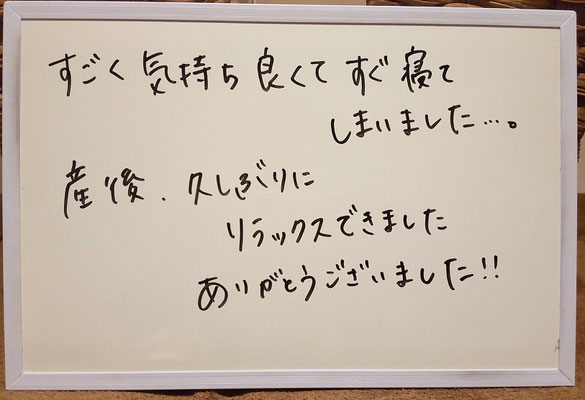 すごく気持ち良くてすぐ寝て
しまいました…。
産後、久しぶりに
リラックスできました
ありがとうございました!!